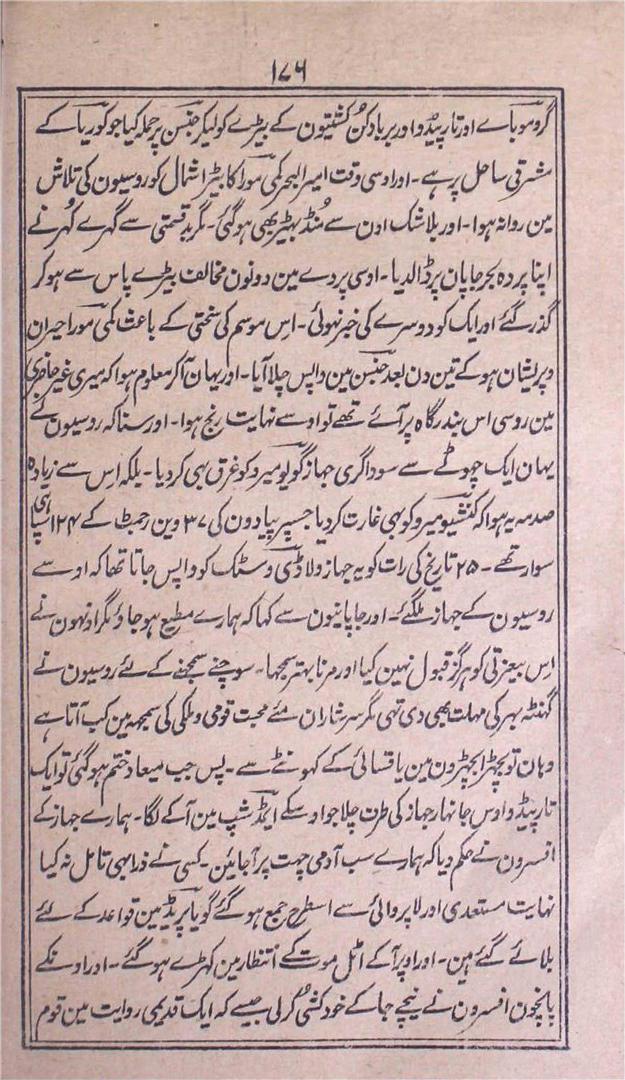 ۱۷۶
گروموباے اور تارپیڈو اور برباد کن کشتیون کے بیڑے کو لیکر جنسن پر حملہ کیا جو کوریا کے
مشرقی ساحل پر ہے۔ اور اوسی وقت امیر البحر کمی مورا کا بیڑا شمال کو روسیون کی تلاش
مین روانہ ہوا۔ اور بلاشک اون سے مُنڈ بہیڑ بھی ہوگئی۔ مگر بدقسمتی سے گہرے کُہر نے
اپنا پردہ بحر جاپان پر ڈالدیا۔ اوسی پردے مین دونون مخالف بیڑے پاس سے ہو کر
گذر گئے اور ایک کو دوسرے کی خبر نہوئی۔ اس موسم کی سختی کے باعث کمی مورا حیران
وپریشان ہو کے تین دن بعد جنسن مین واپس چلا آیا۔ اور یہان آکر معلوم ہوا کہ میری غیر حاضری
مین روسی اس بندرگاہ پر آئے تھے تو اوسے نہایت رنج ہوا۔ اور سنا کہ روسیون نے
یہان ایک چھوٹے سے سوداگری جہاز گویو میرو کو غرق بہی کردیا۔ بلکہ اس سے زیادہ
صدمہ یہ ہوا کہ کنشیو میرو کو بہی غارت کردیا جسپر پیادون کی ۳۷ وین رجمٹ کے ۱۲۴ سپاہی
سوار تھے۔ ۲۵ تاریخ کی رات کو یہ جہاز ولاڈی وسٹک کو واپس جاتا تھا کہ اوسے
روسیون کے جہاز ملگئے۔ اور جاپانیون سے کہا کہ ہمارے مطیع ہو جاؤ مگر اونہون نے
اس بیعزتی کو ہرگز قبول نہین کیا اور مرنا بہتر سمجھا۔ سوچنے سمجھنے کے لئے روسیون نے
گھنٹہ بہر کی مہلت بھی دی تہی مگر سرشاران مئے محبت قومی و ملکی کی سمجہہ مین کب آتا ہے
وہان تو بچھڑا بچھڑون مین یا قسائی کے کھونٹے سے۔ پس جب میعاد ختم ہوگئی تو ایک
تارپیڈو اوس جانہار جہاز کی طرف چلا جو اوسکے ایمڈ شپ مین آکے لگا۔ ہمارے جہاز کے
افسرون نے حکم دیا کہ ہمارے سب آدمی چہت پر آجائین۔ کسی نے ذرا بہی تامل نہ کیا
نہایت مستعدی اور لاپروائی سے اسطرح جمع ہوگئے گویا پریڈ مین قواعد کے لئے
بلائے گئے ہین۔ اور اوپر آکے اٹل موت کے انتظار مین کہڑے ہوگئے۔ اور اونکے
پانچون افسرون نے نیچے جا کے خودکشی کرلی جیسے کہ ایک قدیمی روایت مین قوم